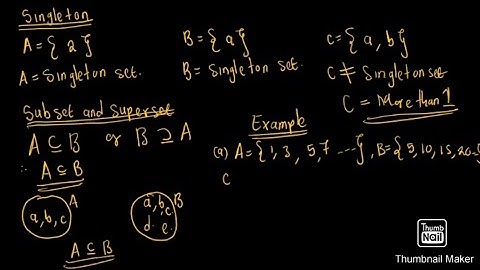 Singleton
A = { 2 }
B = { a }
C = { a, b }
A = Singleton set.
B = Singleton set.
C ≠ Singleton set
C = More than 1
Subset and Superset
A ⊆ B or B ⊇ A
∴ A ⊆ B
a, b, c A
a, b, c B
d. e.
A ⊆ B
Example
(a) A = { 1, 3, 5, 7 ---- }, B = { 5, 10, 15, 20 --
C
Thumb
Nail
Thumbnail Maker